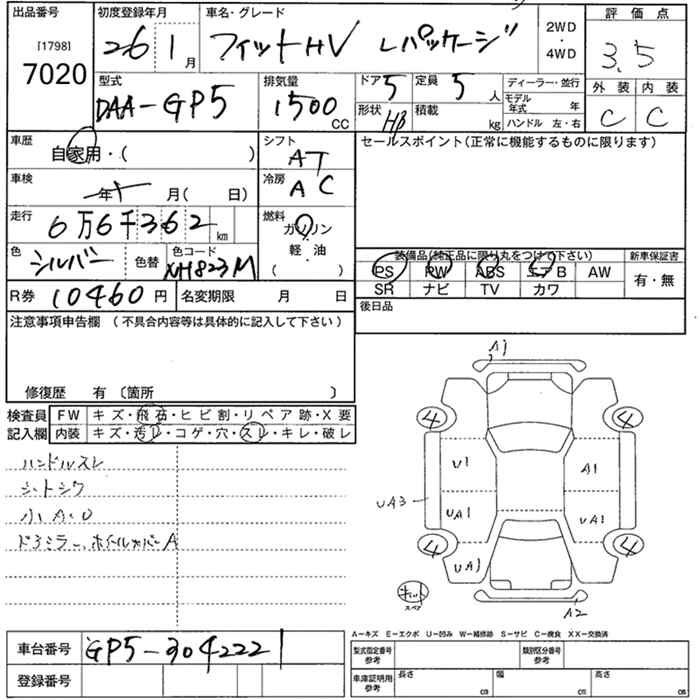 出品番号 初度登録年月 車名・グレード 2WD・4WD 評価点
[1798] 7020
26 1月
フィットHV Lパッケージ
3.5
型式 排気量 ドア 5 定員 5人 ディーラー・並行 外装 内装
DAA-GP5 1500CC
形状 HB 積載 kg
モデル年式 年
ハンドル 左・右
C C
車歴 自家用・( ) シフト AT
セールスポイント(正常に機能するものに限ります)
車検 年 月( 日) 冷房 AC
走行 6万6千362km 燃料 ガソリン 軽・油 ( )
色 シルバー 色替 色コード NH823M
装備品(純正品に限り丸をつけて下さい) 新車保証書
PS PW ABS エアB AW 有・無
SR ナビ TV カワ
R券 10460円 名変期限 月 日
後日品
注意事項申告欄 (不具合内容等は具体的に記入して下さい)
修復歴 有 〔箇所 〕
検査員記入欄
FW キズ・飛石・ヒビ割・リペア跡・X要
内装 キズ・汚レ・コゲ・穴・スレ・キレ・破レ
ハンドルスレ
シートシワ
小A.U
ドアミラー、ホイールカバーA
A1
4 4
U1 A1
UA3
UA1 UA1
4 4
UA1
キット
スペア
A2
A-キズ E-エクボ U-凹み W-補修跡 S-サビ C-腐食 XX-交換済
車台番号 GP5-3042221
登録番号
型式指定番号 参考 類別区分番号 参考
車庫証明用 参考 長さ cm 幅 cm 高さ cm